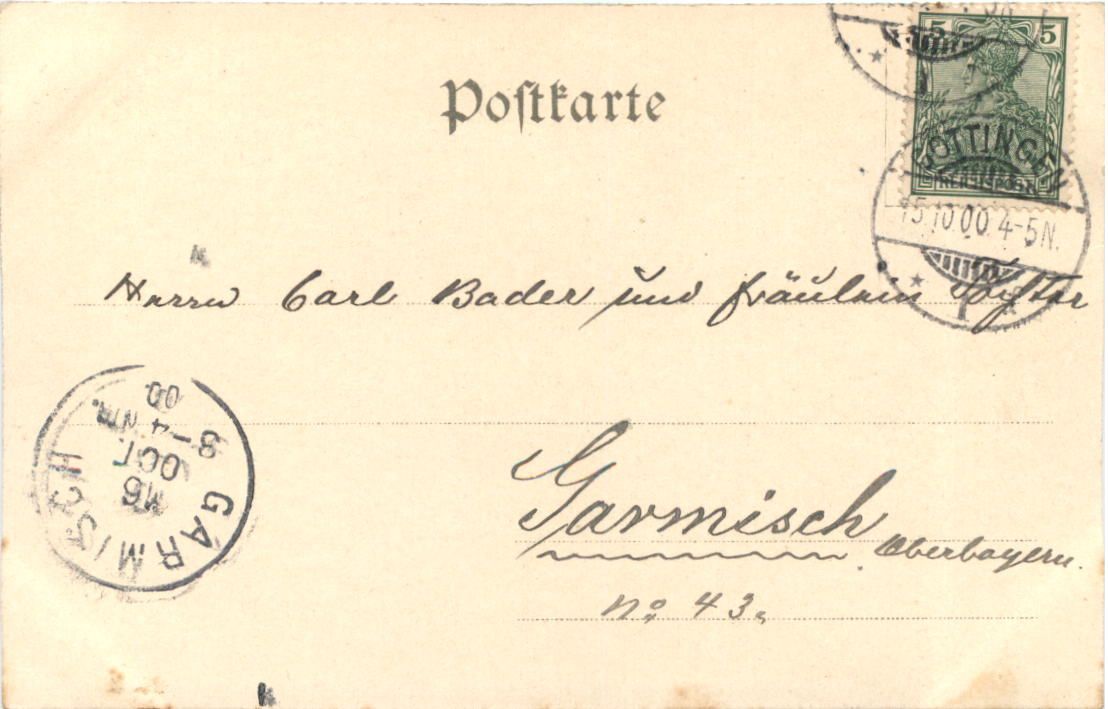 5 5
Postkarte
GÖTTINGEN
REICHSPOST
15.10.00.4-5N.
* 1 *
Herrn Carl Bader und Fräulein
GARMISCH
16
OCT.
3-4 NM.
00
Garmisch
Oberbayern.
No 43.